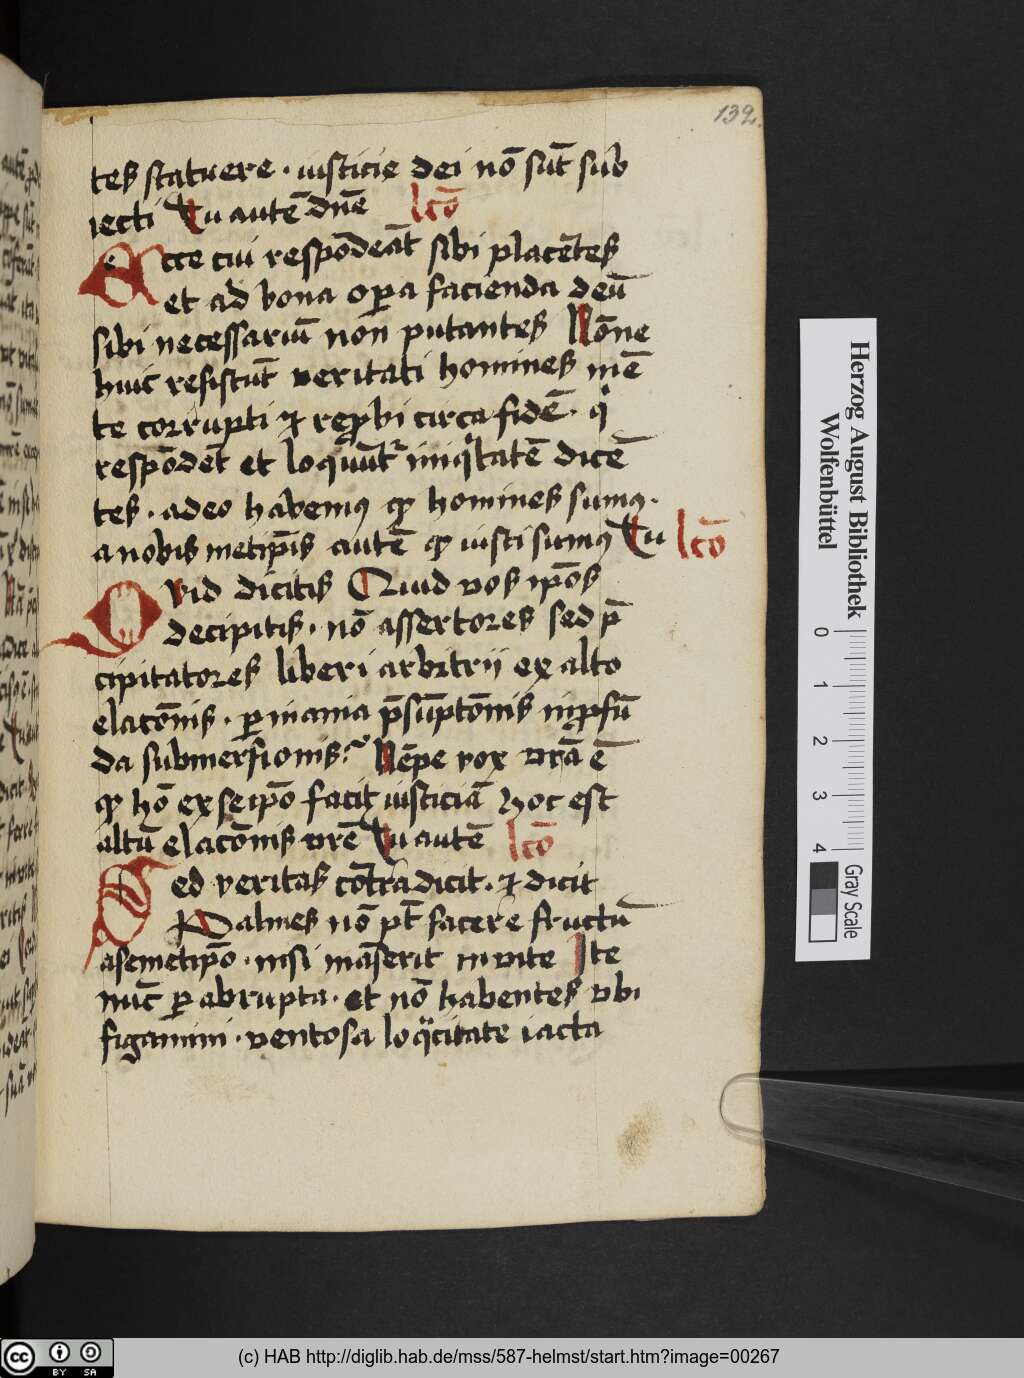 132.
tes statuere · iusticie dei nō sūt sub
iecti Tu autē dn̄e lcō
Ecce cui respōdeāt sibi placētes
et ad bona opa facienda deū
sibi necessariū non putantes Nōne
huic resistūt veritati homines mē
te corrupti ⁊ repbi circa fidē · q
respōdēt et loquūt iniqtatē dicē
tes · adeo habemꝯ ꝙ homines sumꝯ ·
a nobis metip̄is autē ꝙ iusti sumꝯ Tu lcō
Qvid dicitis Quid vos ip̄os
decipitis · nō assertores sed p̄
cipitatores liberi arbitrii ex alto
elacōnis · ꝑ inania p̄sūptōnis in ꝓfū
da submersionis? Nēpe vox vr̄a ē
ꝙ hō ex seip̄o facit iusticiā hoc est
altū elacōnis vr̄e Tu autē lcō
Sed veritas cōtradicit · ⁊ dicit
Palmes nō pt̄ facere fructū
a semetip̄o · nisi māserit in vite Ite
nūc ꝑ abrupta · et nō habentes vbi
figamini · ventosa loq̈citate iacta
Herzog August Bibliothek
Wolfenbüttel
0 1 2 3 4
Gray Scale
cc BY SA
(c) HAB http://diglib.hab.de/mss/587-helmst/start.htm?image=00267